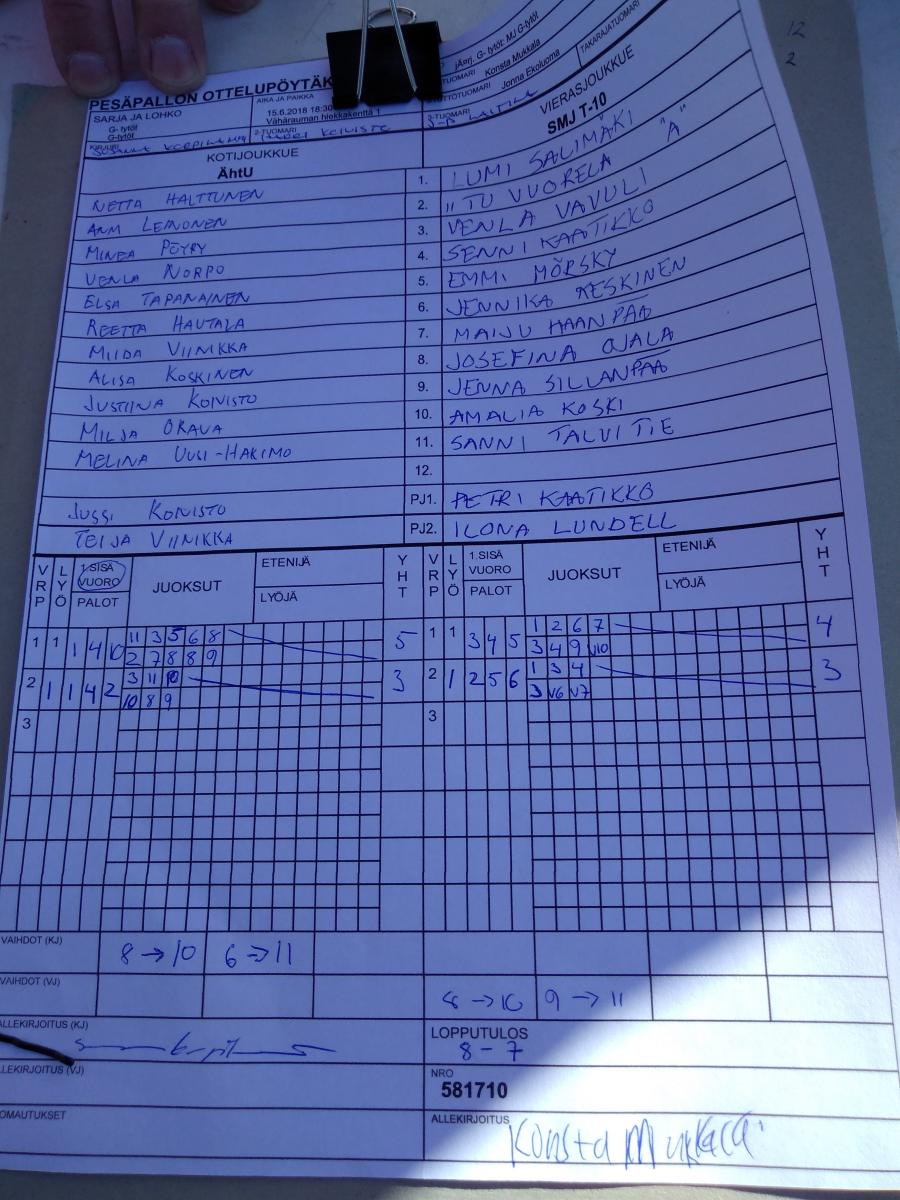 12
2
PESÄPALLON OTTELUPÖYTÄK
SARJA JA LOHKO
G- tytöt
G-tytöt
AIKA JA PAIKKA
15.6.2018 18:30
Vähärauman hiekkakenttä 1
jÄrj. G- tytöt: MJ G-tytöt
TUOMARI Konsta Mukkala
TUOMARI Jonna Ekoluoma
TAKARAJATUOMARI
KIRJURI
2-TUOMARI
3-TUOMARI
KOTIJOUKKUE
ÄhtU
VIERASJOUKKUE
SMJ T-10
"A"
NETTA HALTTUNEN 1. LUMI SALIMÄKI
ANNI LEINONEN 2. IITU VUORELA
MINEA PÖYRY 3. VENLA VAVULI
VENLA NORPO 4. SENNI KAATIKKO
ELSA TAPANAINEN 5. EMMI MÖRSKY
REETTA HAUTALA 6. JENNIKA KESKINEN
MIIDA VIINIKKA 7. MAIJU HAANPÄÄ
ALISA KOSKINEN 8. JOSEFINA OJALA
JUSTIINA KONISTO 9. JENNA SILLANPÄÄ
MILJA ORAVA 10. AMALIA KOSKI
MELINA UUSI-HAKIMO 11. SANNI TALVITIE
12.
JUSSI KONISTO PJ1. PETRI KAATIKKO
TEIJA VIINIKKA PJ2. ILONA LUNDELL
VRP LYÖ 1.SISÄ VUORO PALOT JUOKSUT ETENIJÄ LYÖJÄ YHT VRP LYÖ 1.SISÄ VUORO PALOT JUOKSUT ETENIJÄ LYÖJÄ YHT
1 1 1 4 10 11 3 5 6 8 5 1 1 3 4 5 1 2 6 7 4
2 7 8 8 9 3 4 9 V10
2 1 1 4 2 3 11 10 3 2 1 2 5 6 1 3 4 3
10 8 9 3 V6 V7
3 3
VAIHDOT (KJ) 8→10 6→11
VAIHDOT (VJ) 8→10 9→11
ALLEKIRJOITUS (KJ)
LOPPUTULOS
8-7
ALLEKIRJOITUS (VJ)
NRO
581710
HUOMAUTUKSET
ALLEKIRJOITUS
Konsta Mukkala